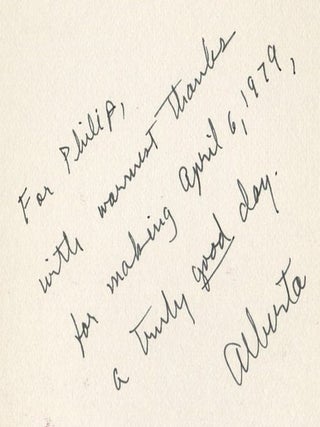 For Philip,
with warmest thanks
for making April 6, 1979,
a truly good day.
Alberta